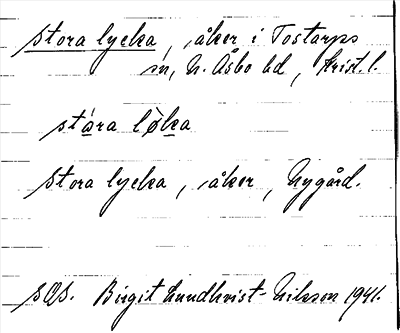 Stora lycka, åker i Tostarps
sn, N. Åsbo hd, Krist. l.
stára lø̀ka
Stora lycka, åker, Nygård.
SOS. Birgit Lundkvist-Nilsson 1941.